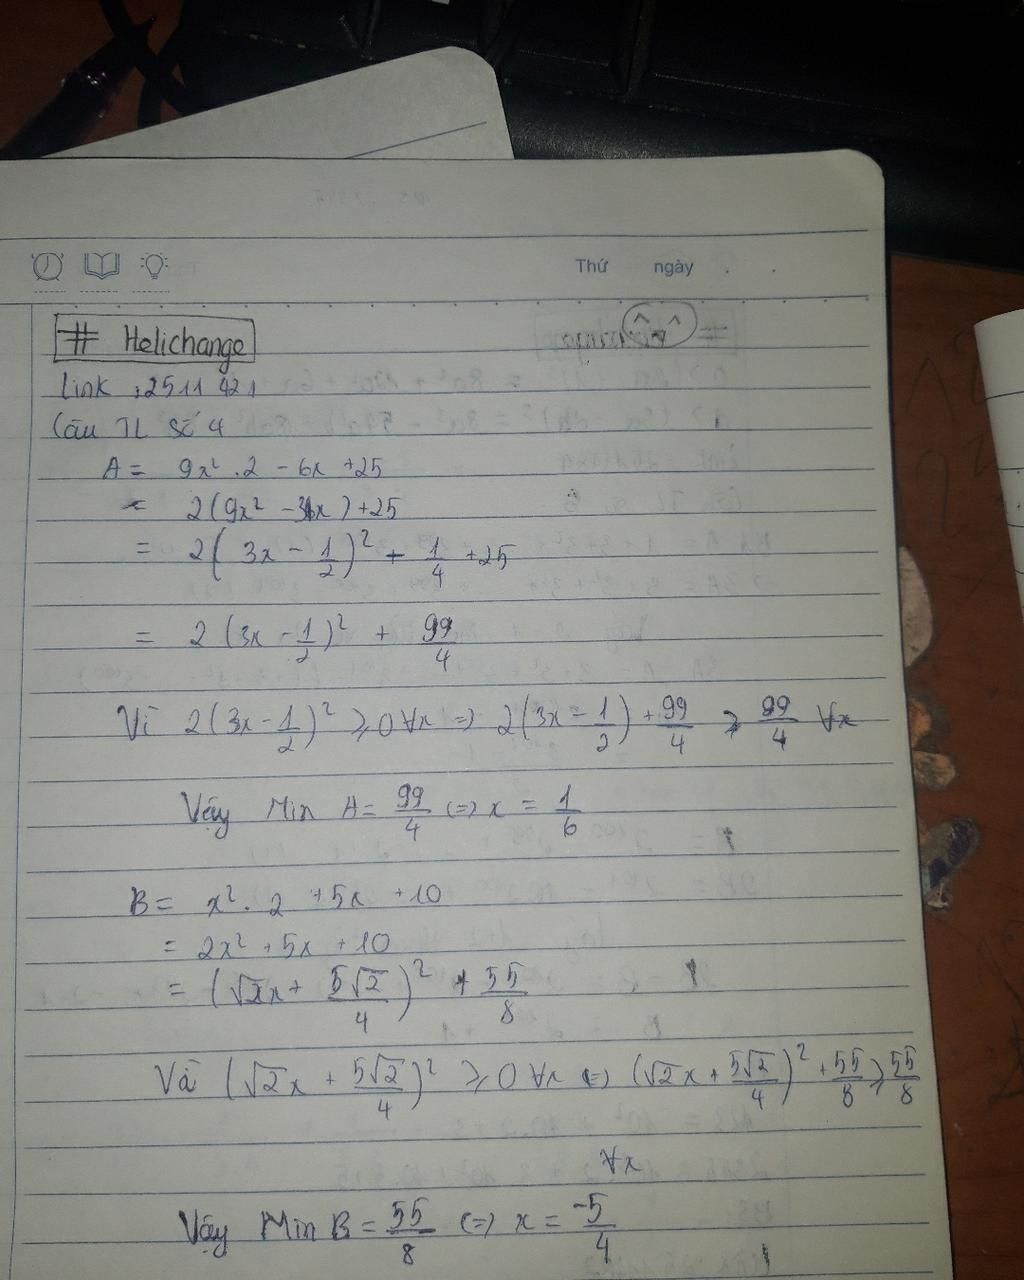 Thứ ngày . .
# Helichange
Link : 2511 421
Câu TL số 4
A = 9x² . 2 - 6x + 25
= 2(9x² - 3x) + 25
= 2(3x - 1/2)² + 1/4 + 25
= 2(3x - 1/2)² + 99/4
Vì 2(3x - 1/2)² ≥ 0 ∀x => 2(3x - 1/2) + 99/4 ≥ 99/4 ∀x
Vậy Min A = 99/4 <=> x = 1/6
B = x² . 2 + 5x + 10
= 2x² + 5x + 10
= (√2x + 5√2/4)² + 55/8
Và (√2x + 5√2/4)² ≥ 0 ∀x <=> (√2x + 5√2/4)² + 55/8 ≥ 55/8
∀x
Vậy Min B = 55/8 <=> x = -5/4